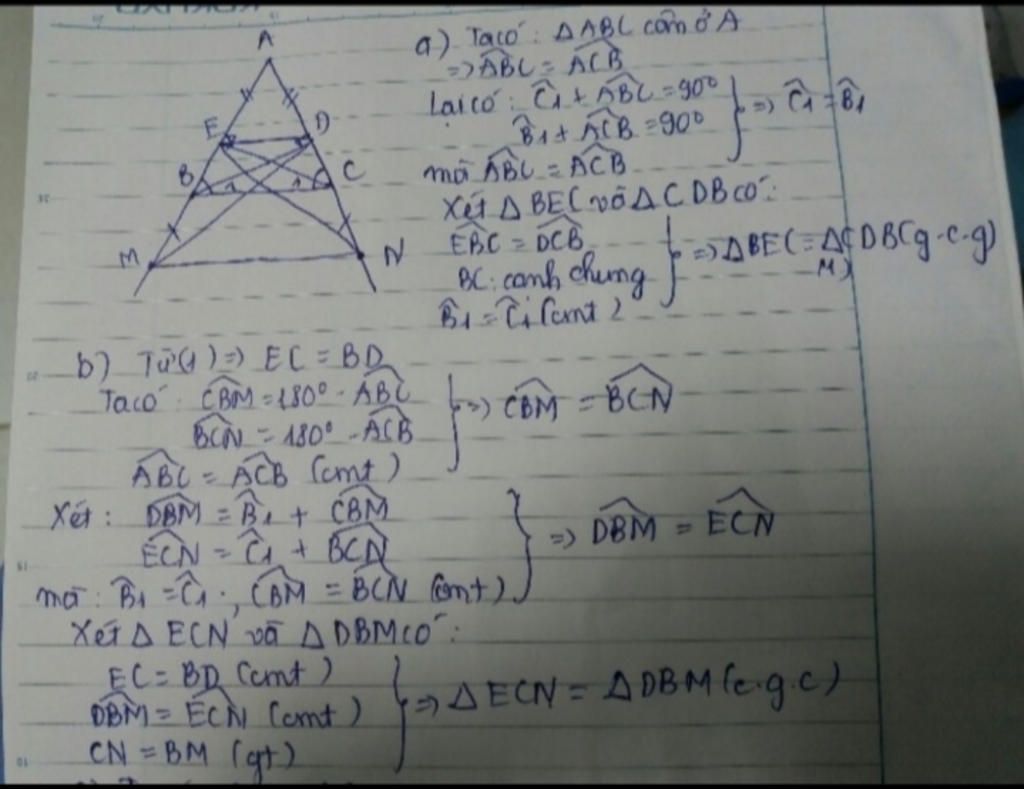 A
E
D
B
1
1
C
M
N
a) Ta có: ΔABC cân ở A
=> ABĈ = AĈB
Lại có: Ĉ1 + ABĈ = 90°
B̂1 + AĈB = 90°
=> Ĉ1 = B̂1
mà ABĈ = AĈB
Xét Δ BEC và Δ CDB có:
EB̂C = DĈB
BC: cạnh chung
B̂1 = Ĉ1 (cmt)
=> ΔBEC = ΔCDB (g-c-g)
(1)
b) Từ (1) => EC = BD
Ta có: CB̂M = 180° - AB̂C
BĈN = 180° - AĈB
AB̂C = AĈB (cmt)
=> CB̂M = BĈN
Xét: DB̂M = B̂1 + CB̂M
EĈN = Ĉ1 + BĈN
mà: B̂1 = Ĉ1 ; CB̂M = BĈN (cmt)
=> DB̂M = EĈN
Xét Δ ECN và Δ DBM có:
EC = BD (cmt)
DB̂M = EĈN (cmt)
CN = BM (gt)
=> Δ ECN = Δ DBM (c.g.c)